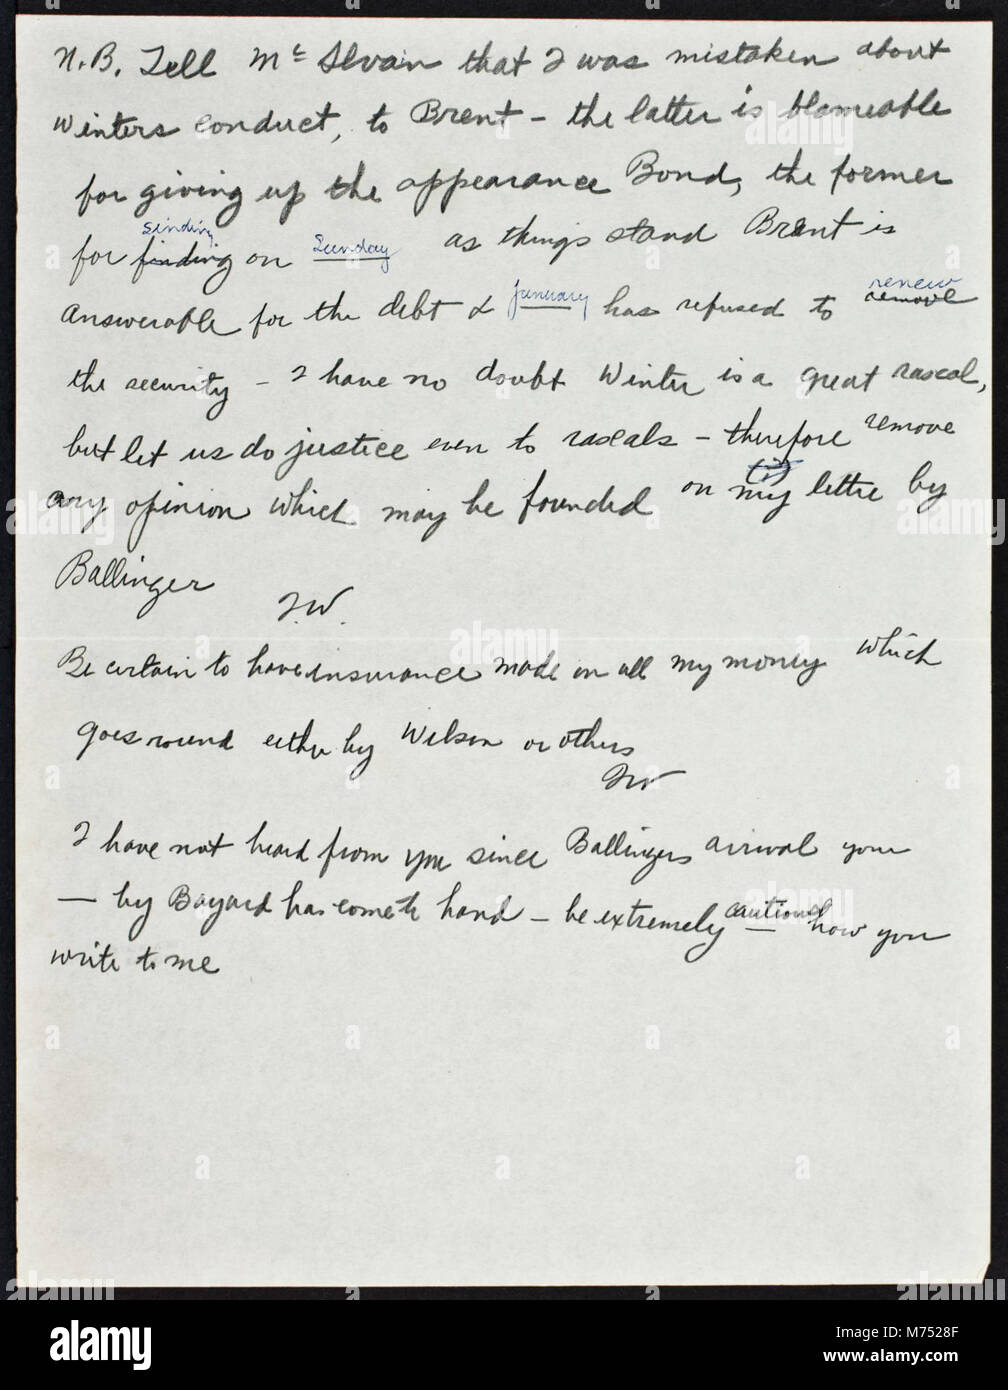 N.B. Tell Mc Ilvain that I was mistaken about
Winters conduct, to Brent – the latter is blameable
for giving up the appearance Bond, the former
sinding
for finding on Sunday as things stand Brent is
renew
answerable for the debt & January has refused to remove
the security – I have no doubt Winter is a great rascal,
but let us do justice even to rascals – therefore remove
any opinion which may be founded on my letter by
Ballinger
J.W.
Be certain to have insurance made on all my money which
goes round either by Wilson or others
JW
I have not heard from you since Ballingers arrival your
— by Bayard has come to hand – be extremely cautious how you
write to me
alamy
Image ID: M7528F
www.alamy.com